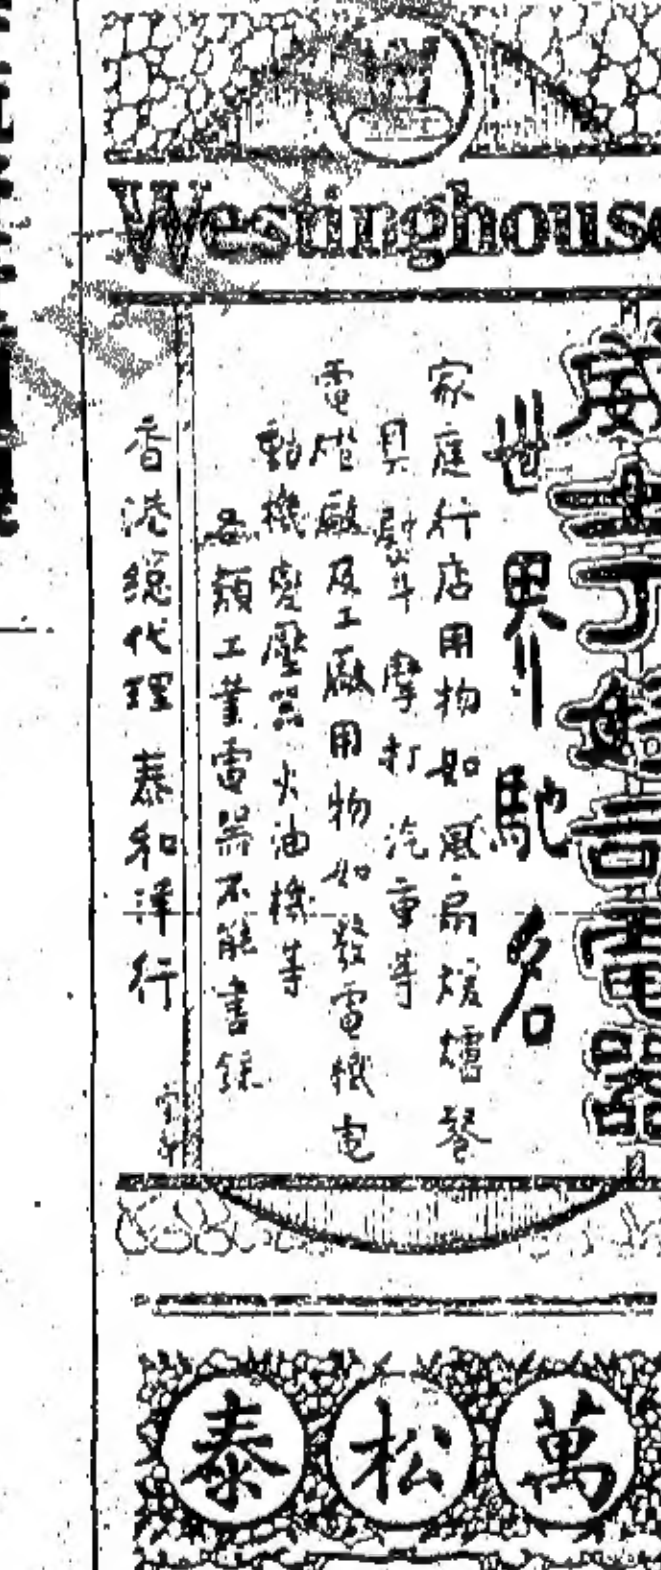 Westinghouse
威士令電器
世界馳名
家庭行店用物如風扇煖爐琴
具熨斗 摩打 汽車等
電燈廠及工廠用物如發電機電
動機變壓器火油機等
各類工業電器不能書錄
香港總代理 泰和洋行
萬松泰